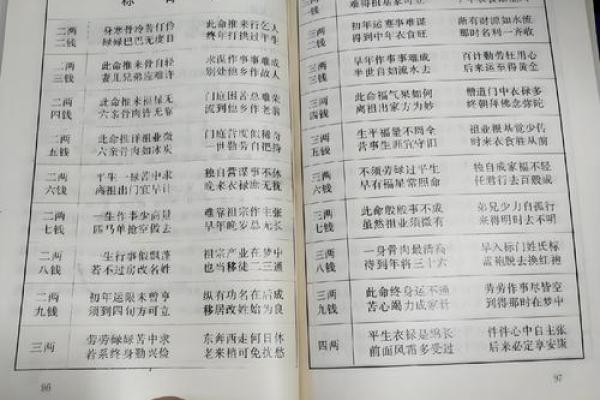 二两 身寒骨冷苦伶仃 此命推来行乞人
二钱 碌碌巴巴无度日 终年打拱过平生
二两 此命推来骨自轻 求谋作事事难成
三钱 妻儿兄弟应难许 别处他乡作散人
二两 此命推来福禄无 门庭困苦总难荣
四钱 六亲骨肉皆无靠 流到他乡作老翁
二两 此命推详祖业微 门庭营度似稀奇
五钱 六亲骨肉如冰炭 一世勤劳自把持
二两 平生一禄苦中求 独自营谋事不休
六钱 离祖出门宜早计 晚来衣禄就无忧
二两 一生作事少商量 难靠祖宗作主张
七钱 匹马单枪空做去 早年晚岁总无长
二两 一生行事似飘蓬 祖宗产业在梦中
八钱 若不过房改名姓 也当移徒二三通
二两 初年运限未曾亨 纵有功名在后成
九钱 须到四旬方可立 移居改姓始为良
三两 劳劳碌碌苦中求 东奔西走何日休
若系终身勤兴俭 老来稍可免忧愁
96
初年运蹇事难谋 渐有财源如水流
到得中年衣食旺 那时名利一齐收
早年作事事难成 百计勤劳枉用心
半世自如流水去 后来运至得黄金
三两 此命福气果如何 僧道门中衣禄多
四钱 离祖出家方为妙 终朝拜佛念弥陀
三两 生平福量不周全 祖业根基觉少传
五钱 营事生涯宜守旧 时来衣食胜从前
三两 不须劳碌过平生 独自成家福不轻
六钱 早有福星常照命 任君行去百般成
三两 此命般般事不成 弟兄少力自孤行
七钱 虽然祖业须微有 来得明时去不明
三两 一身骨肉最清高 早入标门姓氏标
八钱 待到年将三十六 蓝袍脱去换红袍
三两 此命终身运不通 劳劳作事尽皆空
九钱 苦心竭力成家计 到得那时在梦中
四两 平生衣禄是绵长 件件心中自主张
前面风霜多受过 后来必定享安康
97